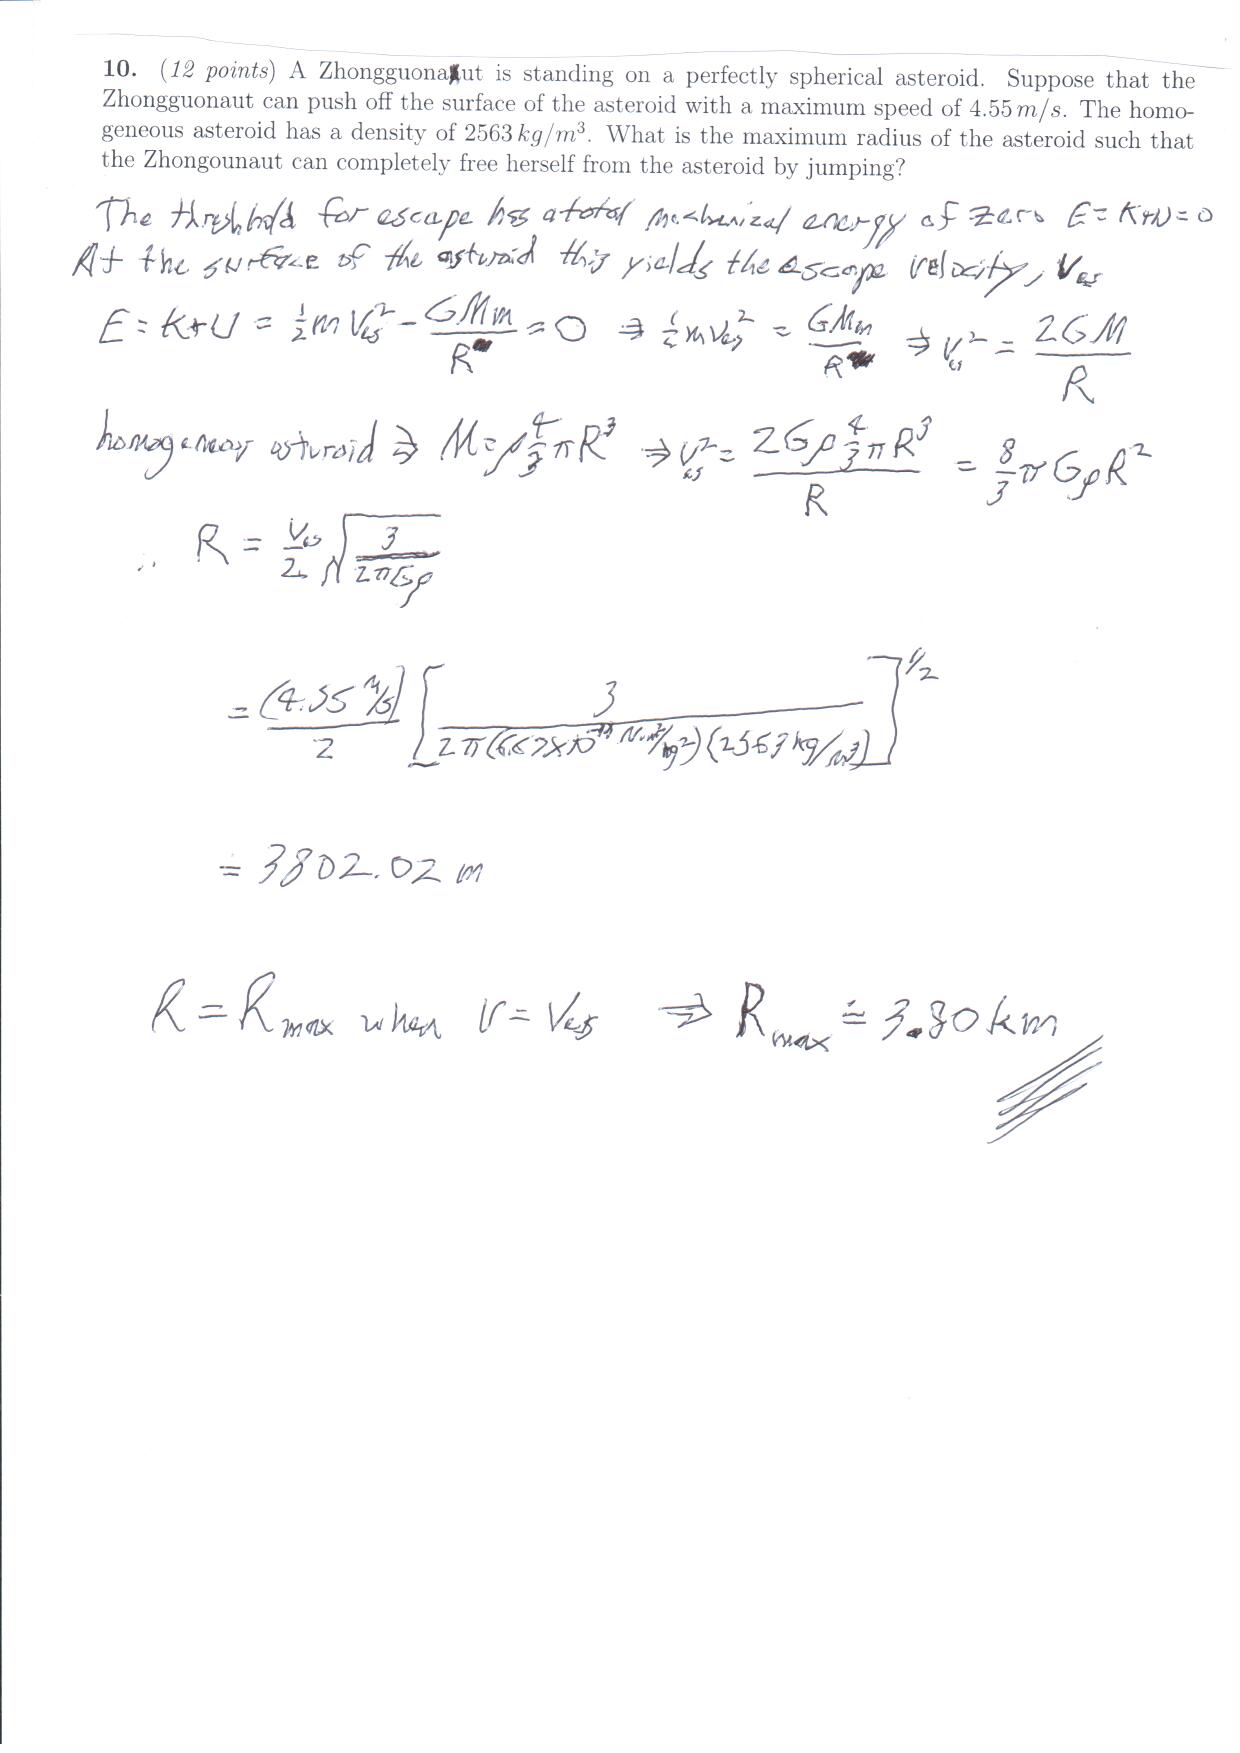 10. (12 points) A Zhongguonaut is standing on a perfectly spherical asteroid. Suppose that the
Zhongguonaut can push off the surface of the asteroid with a maximum speed of 4.55 m/s. The homo-
geneous asteroid has a density of 2563 kg/m³. What is the maximum radius of the asteroid such that
the Zhongounaut can completely free herself from the asteroid by jumping?
The threshhold for escape has a total mechanical energy of zero E = K+U = 0
At the surface of the asturoid this yields the escape velocity, V_es
E = K+U = ½ m V_es² − GMm/R = 0 ⇒ ½ m V_es² = GMm/R ⇒ V_es² = 2GM/R
homogeneous asturoid ⇒ M = ρ 4/3 π R³ ⇒ V_es² = 2Gρ 4/3 π R³ / R = 8/3 π G ρ R²
∴ R = V_es/2 √(3/(2πGρ))
= (4.55 m/s)/2 [3/(2π(6.67×10⁻¹¹ N·m²/kg²)(2563 kg/m³))]^1/2
= 3802.02 m
R = R_max when V = V_es ⇒ R_max ≐ 3.80 km